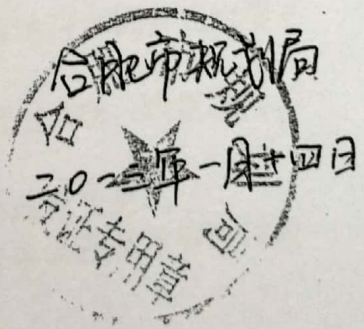 合肥市规划局
二〇一三年一月十四日
合 规 局
发证专用章